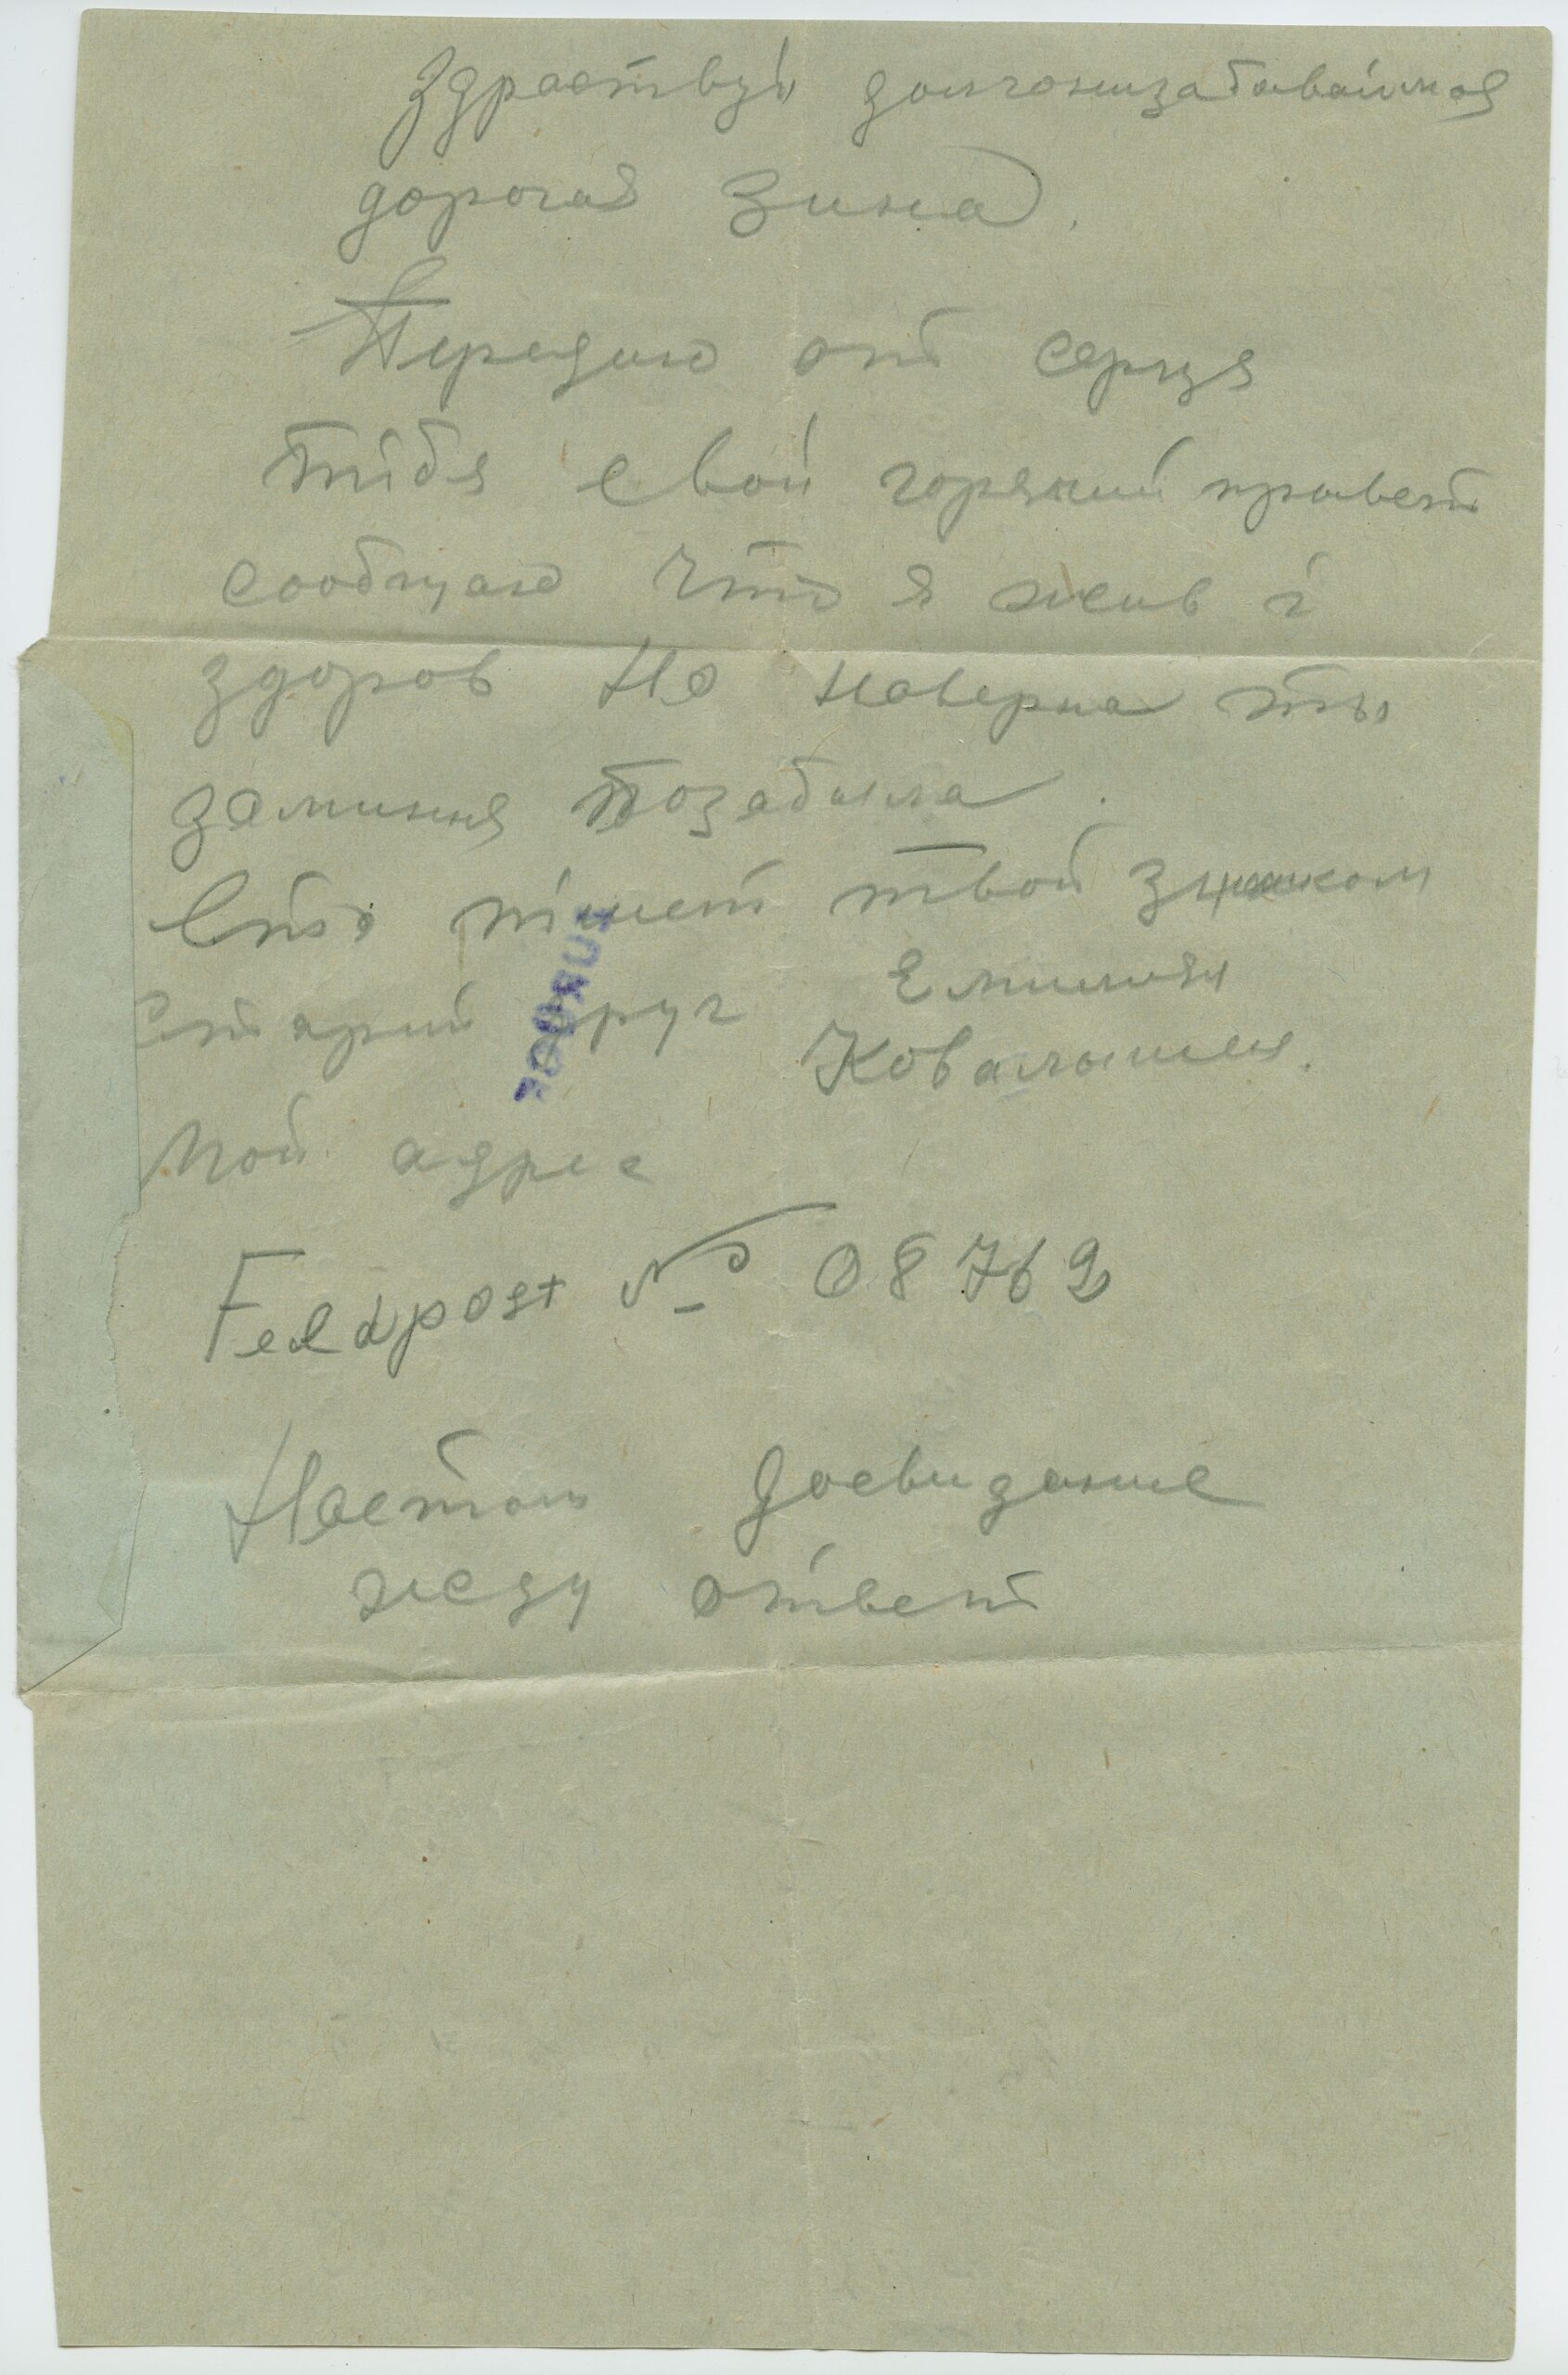 Здраствуй долгонизабаваймая
дорогая Зина.
Передаю от серця
тибя свой горячий привет
сообщаю что я жив і
здоров Но наверна ты
заминня позабыла.
Ето пішет твой знаком
старий друг Емилиян
Мой адрес
Feldpost № 08762
Настом досвидание
жду ответ